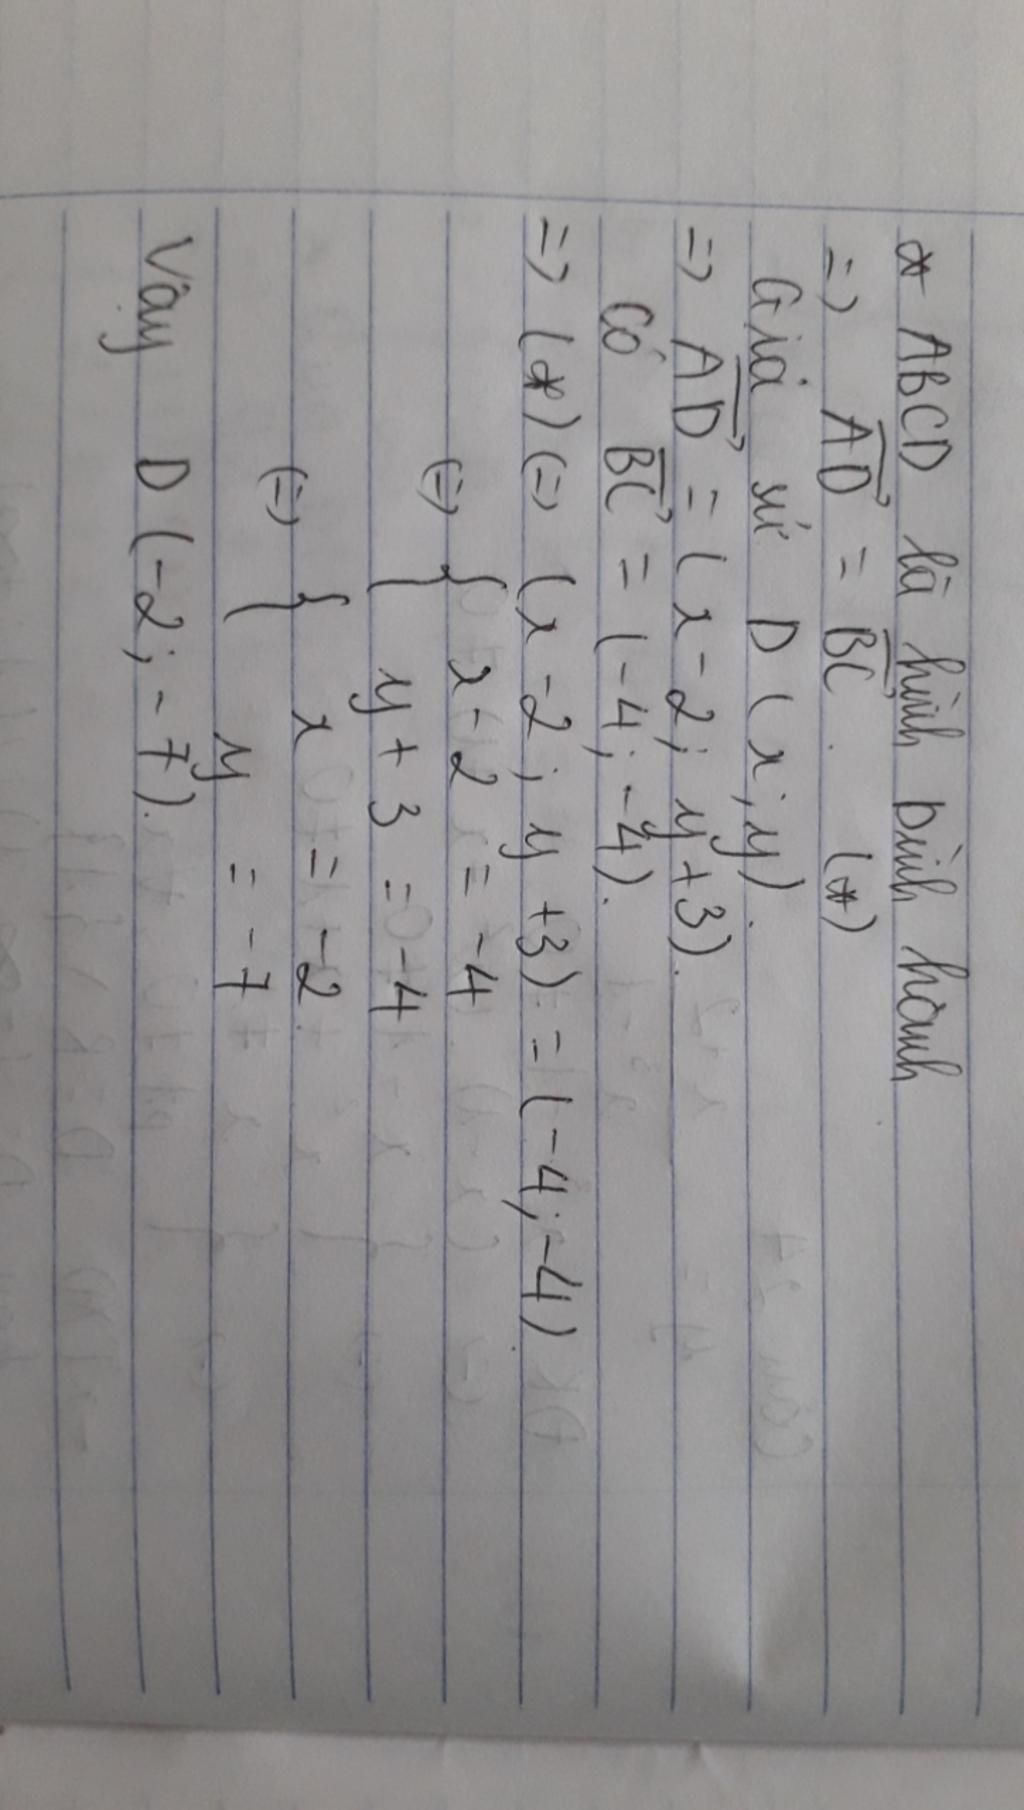 * ABCD là hình bình hành
=> \overrightarrow{AD} = \overrightarrow{BC}. (*)
Giả sử D (x; y).
=> \overrightarrow{AD} = (x - 2; y + 3).
Có \overrightarrow{BC} = (-4; -4).
=> (*) (=) (x - 2; y + 3) = (-4; -4)
(=) { x - 2 = -4
y + 3 = -4
(=) { x = -2
y = -7
Vây D (-2; -7).